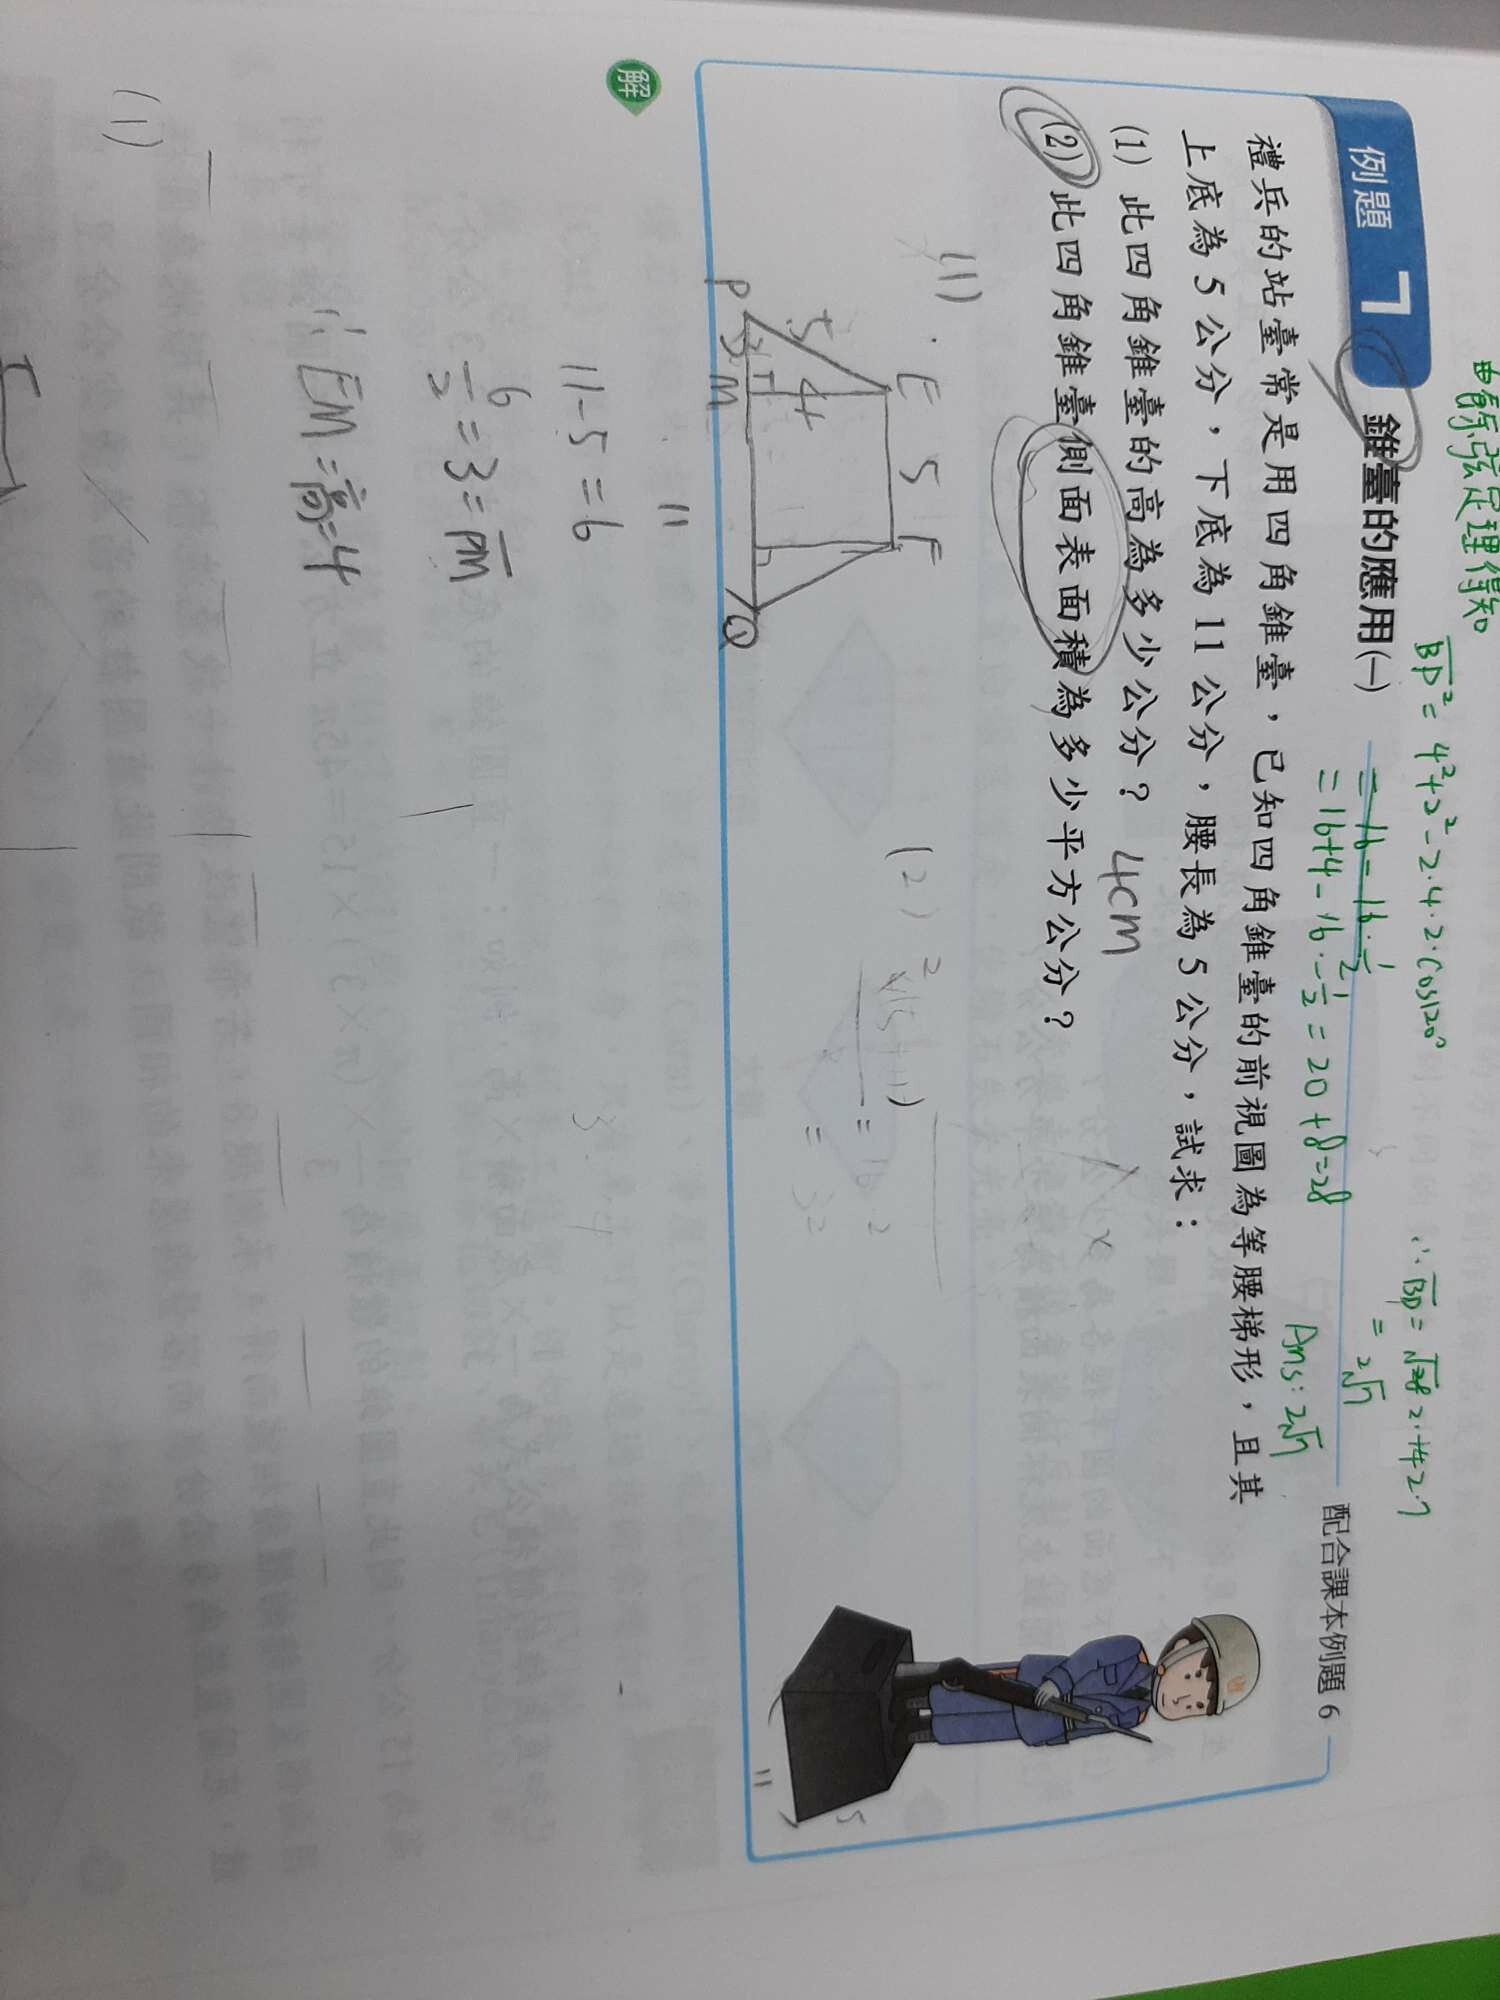 由餘弦定理得知
BD² = 4²+2²-2·4·2·cos120°
= 16 - 16·1/2
= 16+4-16·-1/2 = 20+8=28
∴ BD = √28
= 2√7
Ans: 2√7
例題 7 錐臺的應用(一)
配合課本例題 6
禮兵的站臺常是用四角錐臺,已知四角錐臺的前視圖為等腰梯形,且其
上底為 5 公分,下底為 11 公分,腰長為 5 公分,試求:
(1) 此四角錐臺的高為多少公分? 4cm
(2) 此四角錐臺側面表面積為多少平方公分?
(1)
E 5 F
5 4
P 3 M Q
11
(2)
11
5
解
11-5=6
6/2=3=PM
∴ EM=高=4
(1)